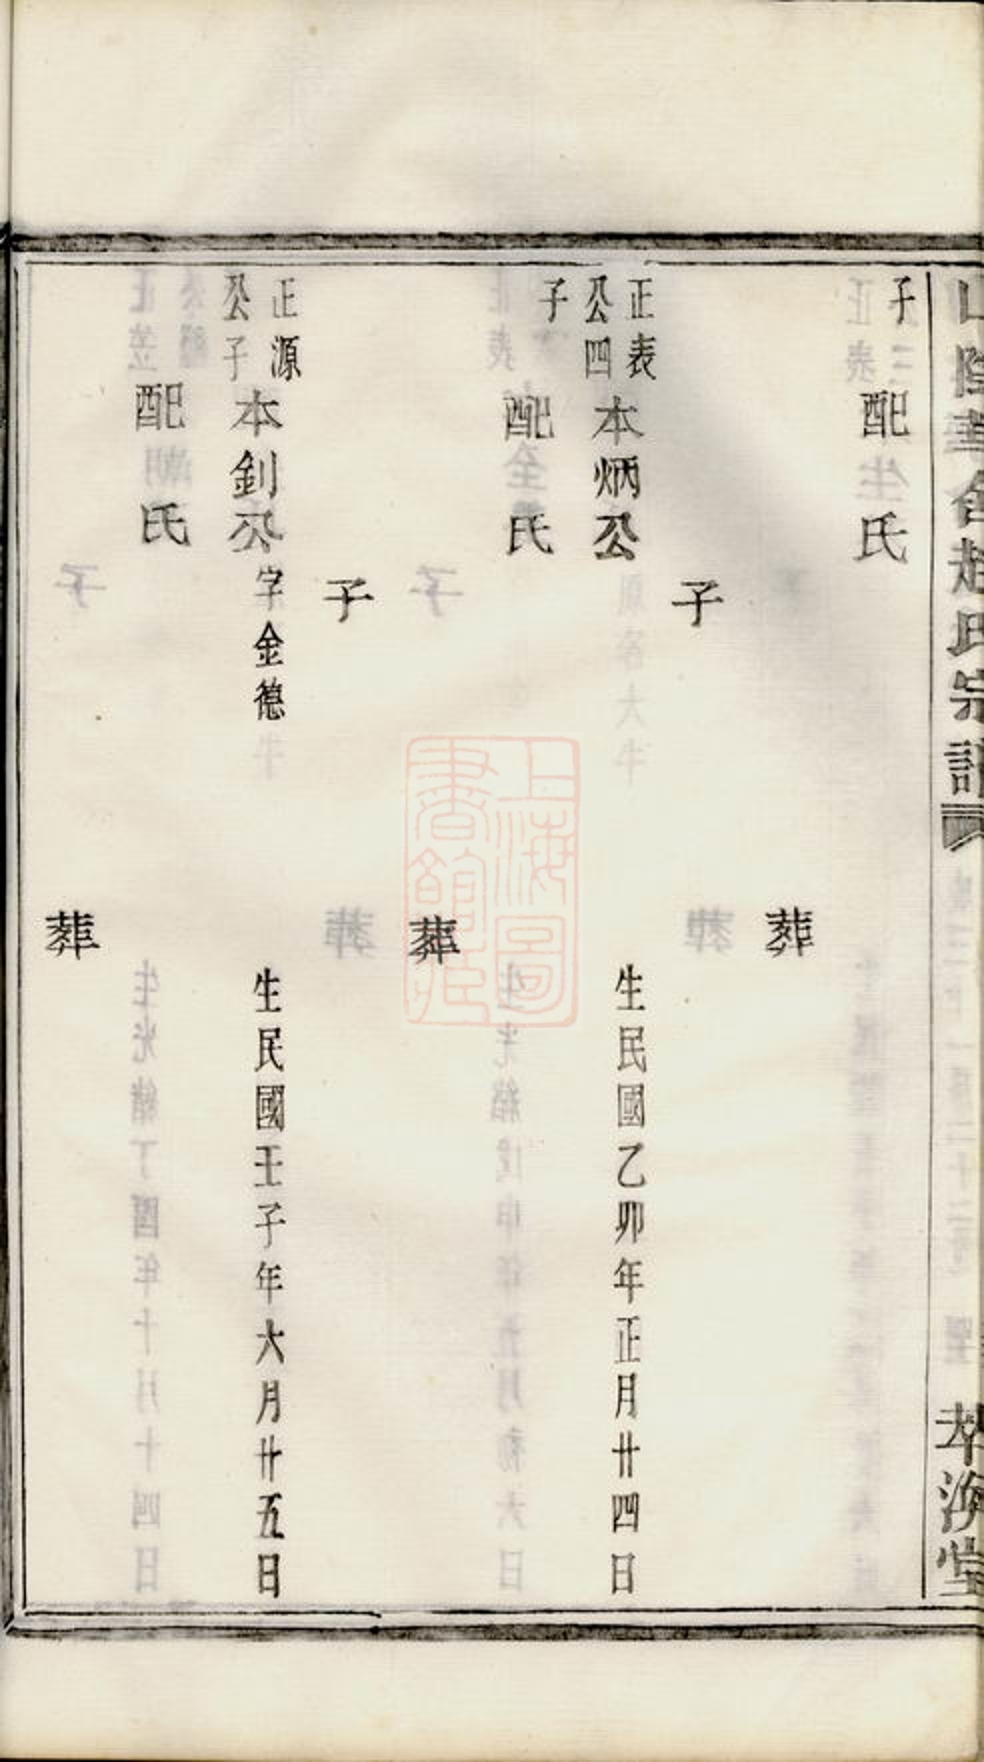 山陰華舍趙氏宗譜
萃渙堂
子
配 氏
子
葬
正表
公四
子
本炳公
生民國乙卯年正月廿四日
配 氏
子
葬
正源
公子
本釗公字金德
生民國壬子年六月廿五日
配 氏
葬
上海圖書館藏